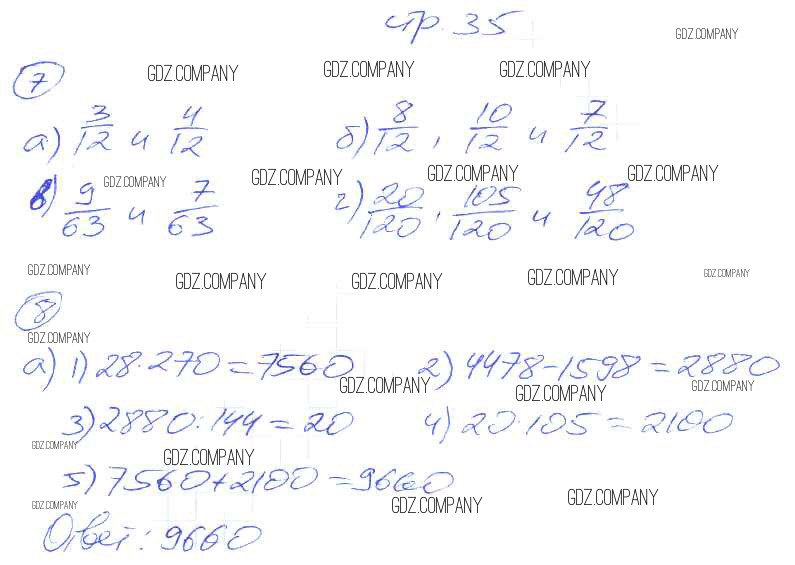 стр. 35
GDZ.COMPANY
7
GDZ.COMPANY GDZ.COMPANY GDZ.COMPANY
а) 3/12 и 4/12 б) 8/12, 10/12 и 7/12
GDZ.COMPANY GDZ.COMPANY GDZ.COMPANY GDZ.COMPANY
в) 9/63 и 7/63 г) 20/120, 105/120 и 48/120
GDZ.COMPANY GDZ.COMPANY GDZ.COMPANY GDZ.COMPANY GDZ.COMPANY
8
GDZ.COMPANY
а) 1) 28·270=7560 2) 4478-1598=2880
GDZ.COMPANY GDZ.COMPANY GDZ.COMPANY
3) 2880:144=20 4) 20·105=2100
GDZ.COMPANY GDZ.COMPANY
5) 7560+2100=9660
GDZ.COMPANY GDZ.COMPANY GDZ.COMPANY
Ответ: 9660